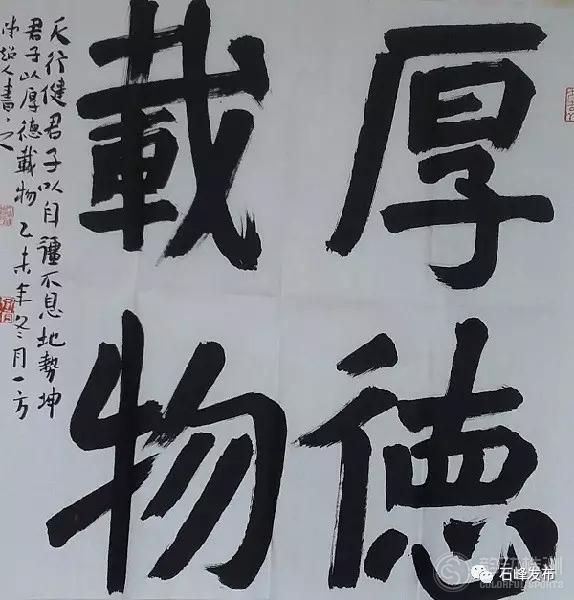 厚徳
載物
天行健君子以自疆不息地勢坤
君子以厚德載物乙未年冬月一方
書之
石峰发布
COLORFUL SPORTS